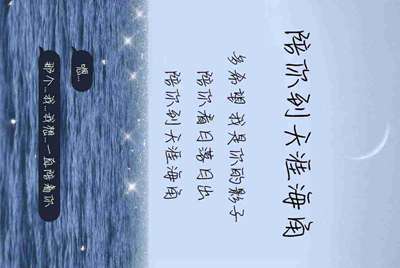 陪你到天涯海角
多希望我是你的影子
陪你看日落日出
陪你到天涯海角
嗯...
那个...我...我想...一直陪着你